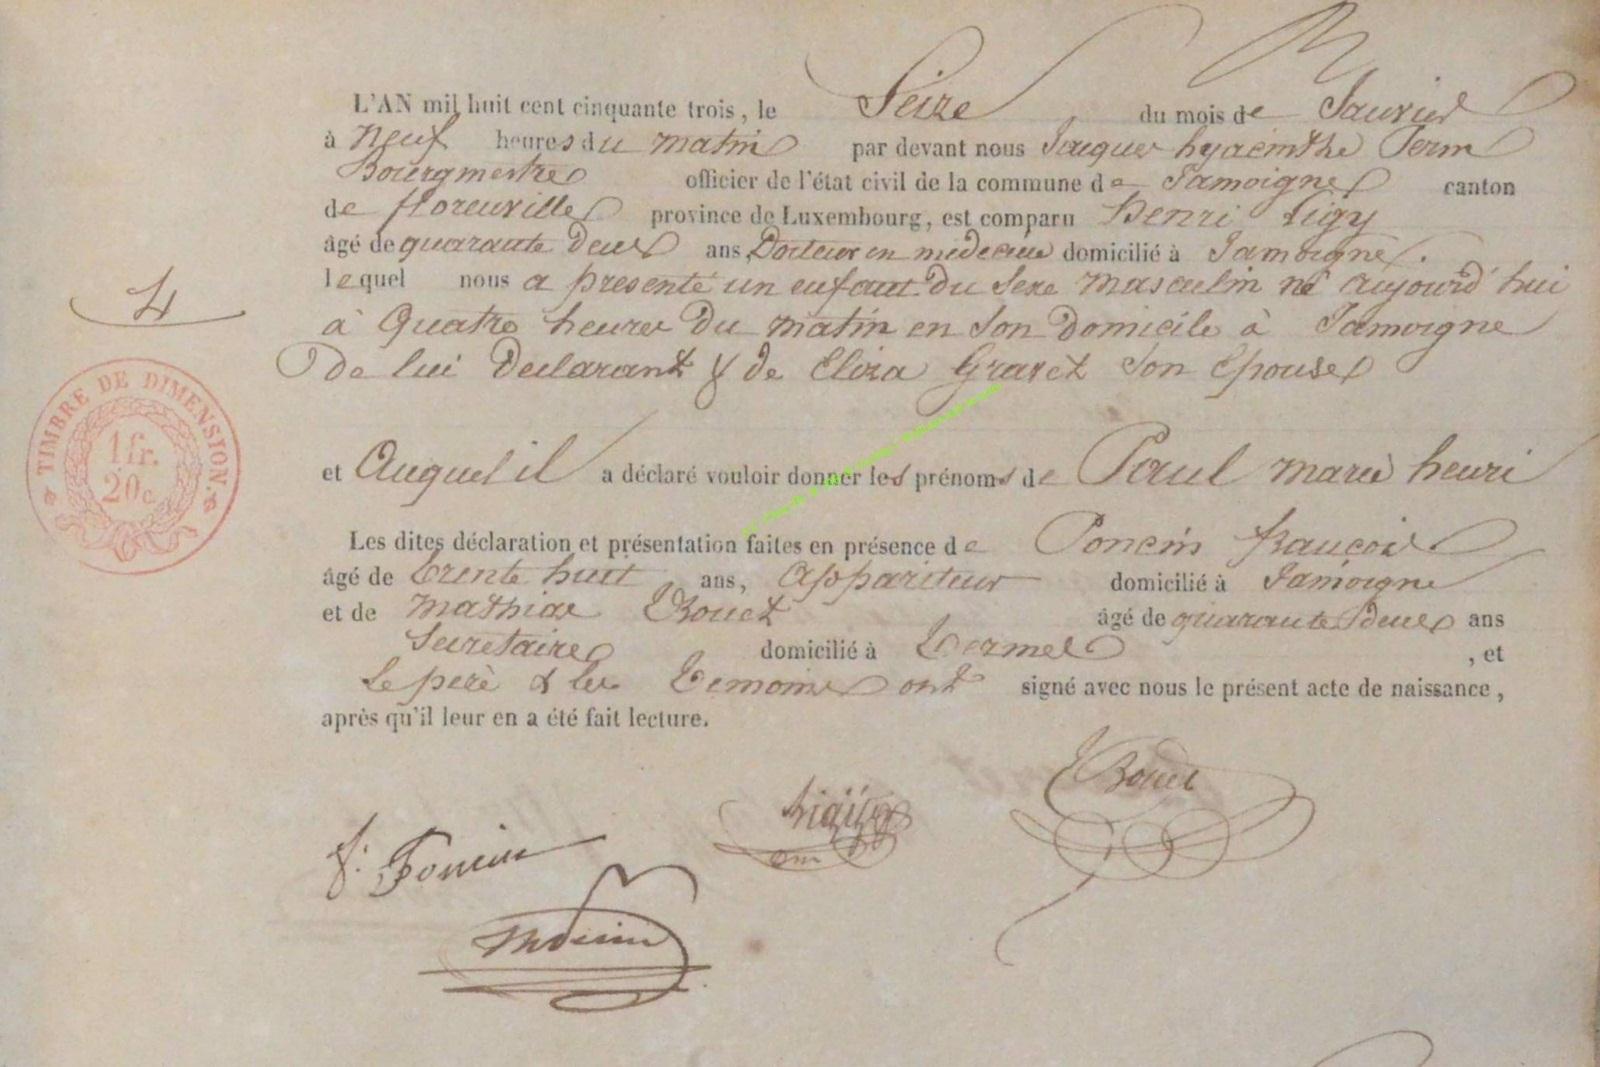 L'AN mil huit cent cinquante trois, le Seize du mois de Janvier
à neuf heures du matin par devant nous Jacques hyacinthe
Bourgmestre officier de l'état civil de la commune de Jamoigne canton
de florenville province de Luxembourg, est comparu henri Tigy
âgé de quarante deux ans, Docteur en médecine domicilié à Jamoigne.
lequel nous a presenté un enfant du Sexe masculin né aujourd'hui
à Quatre heures du matin en Son Domicile à Jamoigne
De lui Declarant & de Eliza Gravet Son Epouse
et Auquel il a déclaré vouloir donner les prénoms de Paul marie henri
Les dites déclaration et présentation faites en présence de Poncin françois
âgé de trente huit ans, Appariteur domicilié à Jamoigne
et de Mathias âgé de quarante deux ans
Secretaire domicilié à Termes, et
Le père & les Temoins ont signé avec nous le présent acte de naissance,
après qu'il leur en a été fait lecture.
4
TIMBRE DE DIMENSION.
1 fr.
20c.
f. Poncin